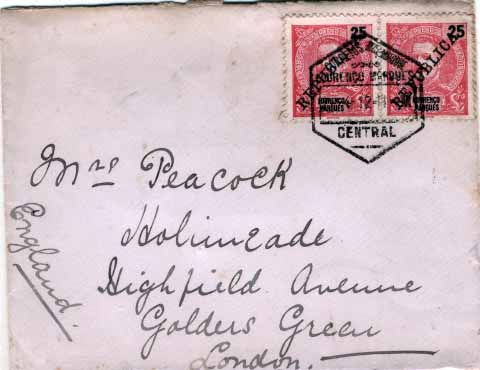 25 25
REPUBLICA REPUBLICA
LOURENÇO MARQUES
LOURENÇO MARQUES
LOURENÇO MARQUES
CENTRAL
Mrs Peacock
Holimeade
Highfield Avenue
Golders Green
London.
England.